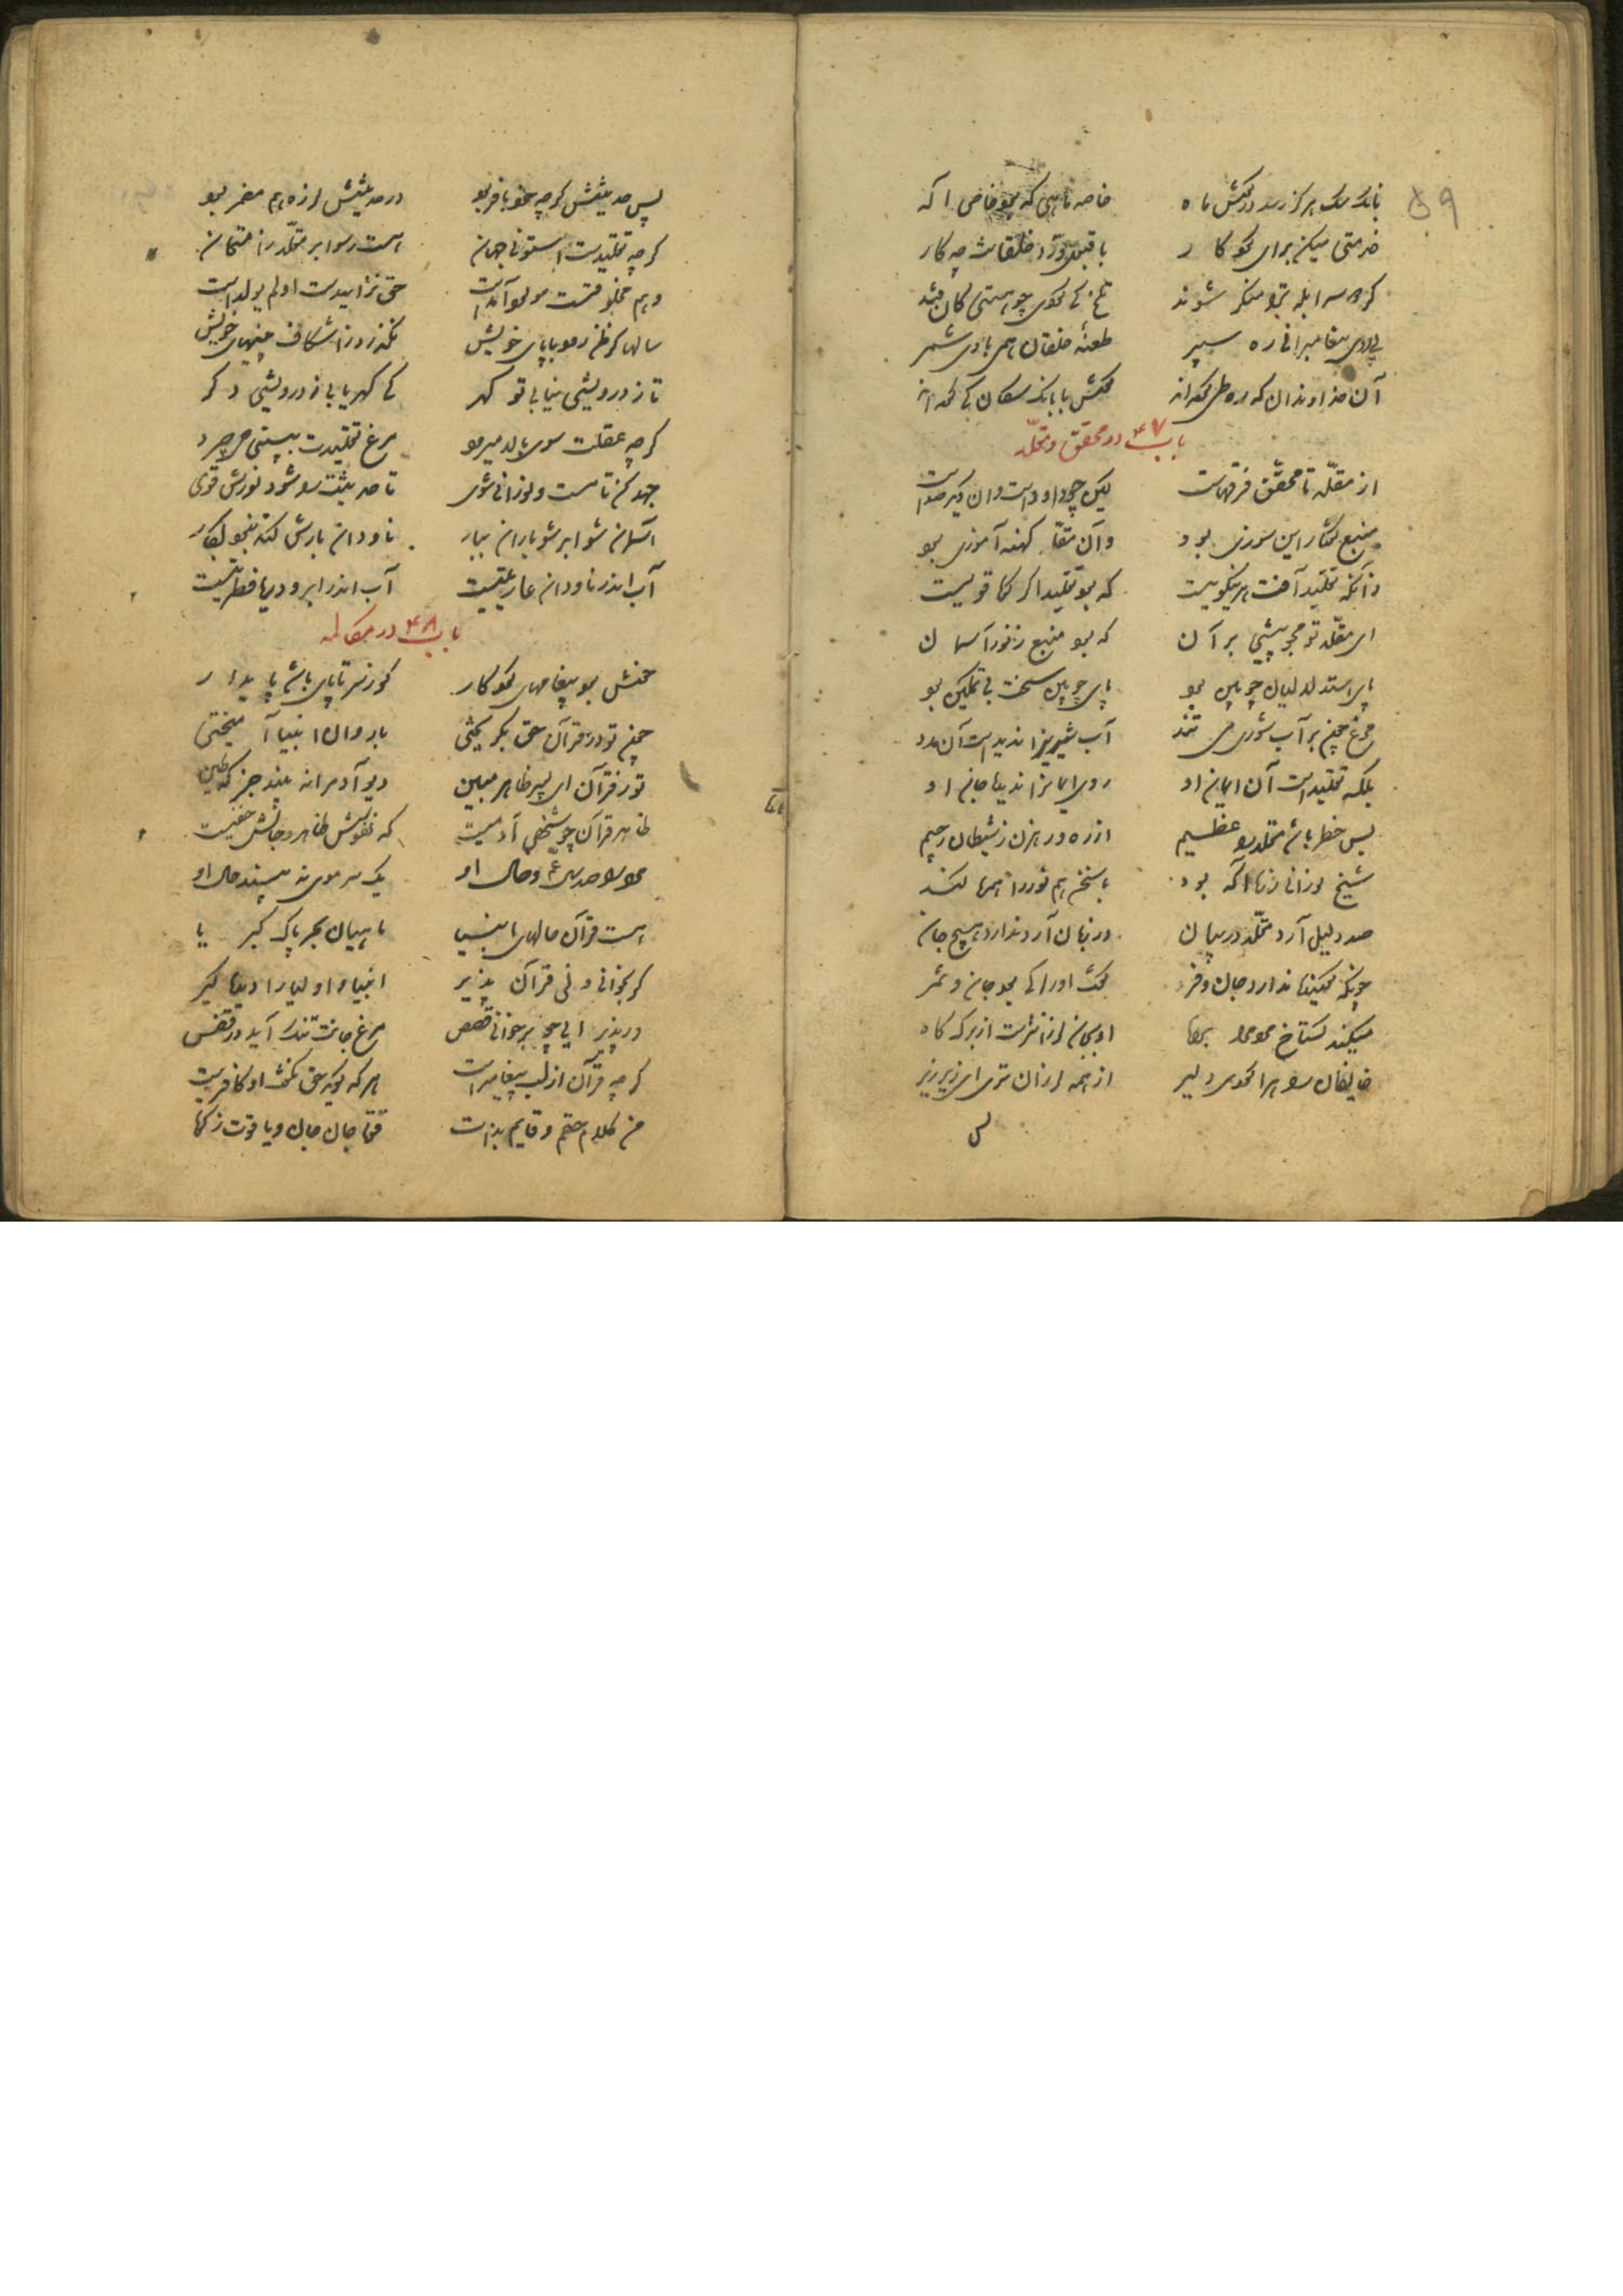 ۵۹
بانک سک هرکز رسد در کوش ماه خاصه ماهی که بود خاص اله
خدمتی میکن برای کردکار با قبول و رد خلقانت چه کار
کر دو سه ابله ترا منکر شوند تلخ کی کردی چو هستی کان قند
طعنه خلقان همی بادی شمر
آن خداوندان که ره طی کرده اند کوش با بانک سکان کی کرده اند
باب ۴۷ در محقق و مقلد
از مقلد تا محقق فرقهاست لیک چون داود است وان دیگر صداست
منبع گفتار این سوزی بود وان مقلد کهنه آموزی بود
زآنکه تقلید آفت هر نیکویست که بود تقلید اگر کوه قویست
ای مقلد تو مجو پیشی بر آن که بود منبع ز نور آسمان
پای استدلالیان چوبین بود پای چوبین سخت بی تمکین بود
مرغ چون بر آب شوری می تند آب شیرین را ندیدست آن مدد
بلکه تقلیدست آن ایمان او روی ایمانرا ندیده جان او
بس خطر باشد مقلد را عظیم از ره و رهزن ز شیطان رجیم
شیخ نورانی ز ره آکه بود با سخن هم نور را همره کند
صد دلیل آرد مقلد در بیان در زبان آرد ندارد هیچ جان
چونکه کوینده ندارد جان و فر گفت او را کی بود جان و ثمر
میکند کستاخ مردم را براه او بجان لرزانترست از برک کاه
پس حدیثش کرچه خود بافر بود در حدیثش لرزه هم مضمر بود
کرچه تقلیدست استون جهان هست رسوا هر مقلد ز امتحان
وهم مخلوقست و مولود آمدست حق نزاییدست او لم یولدست
سالها کر ظن رود با پای خویش نکذرد ز اشکاف بینیهای خویش
تا ز درویشی نیابی تو کهر کی کهر یابی ز درویشی دکر
کرچه عقلت سوی بالا میرود مرغ تقلیدت بپستی می چرد
جهد کن تا مست و نورانی شوی تا حدیثت را شود نورش قوی
آسمان شو ابر شو باران ببار ناودان بارش کند نبود بکار
آب اندر ناودان عاریتیست آب اندر ابر و دریا فطرتیست
باب ۴۸ در مکالمه
چون تو در قرآن حق بکریختی با روان انبیا آمیختی
تو ز قرآن ای پسر ظاهر مبین دیو آدم را نه بیند جز که طین
ظاهر قرآن چو شخص آدمیست که نقوشش ظاهر و جانش خفیست
مرد را صد سال عم و خال او یک سر موی نه بیند حال او
هست قرآن حالهای انبیا ماهیان بحر پاک کبریا
کر بخوانی و نی قرآن پذیر انبیا و اولیا را دیده کیر
ور پذیرایی چو برخوانی قصص مرغ جانت تنک آید در قفس
کرچه قرآن از لب پیغامبرست هر که کوید حق نکفت او کافرست
من کلام حقم و قایم بذات قوت جان جان و یاقوت زکات